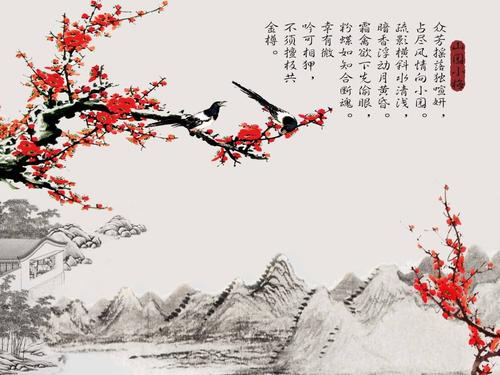 山园小梅
众芳摇落独喧妍，
占尽风情向小园。
疏影横斜水清浅，
暗香浮动月黄昏。
霜禽欲下先偷眼，
粉蝶如知合断魂。
幸有微
吟可相狎，
不须檀板共
金樽。